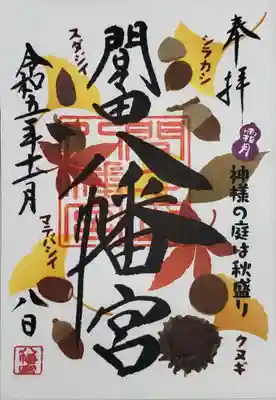 奉拝
霜月
神様の庭は秋盛り
シラカシ
クヌギ
間々田八幡宮
スダジイ
マテバシイ
令和五年十一月八日